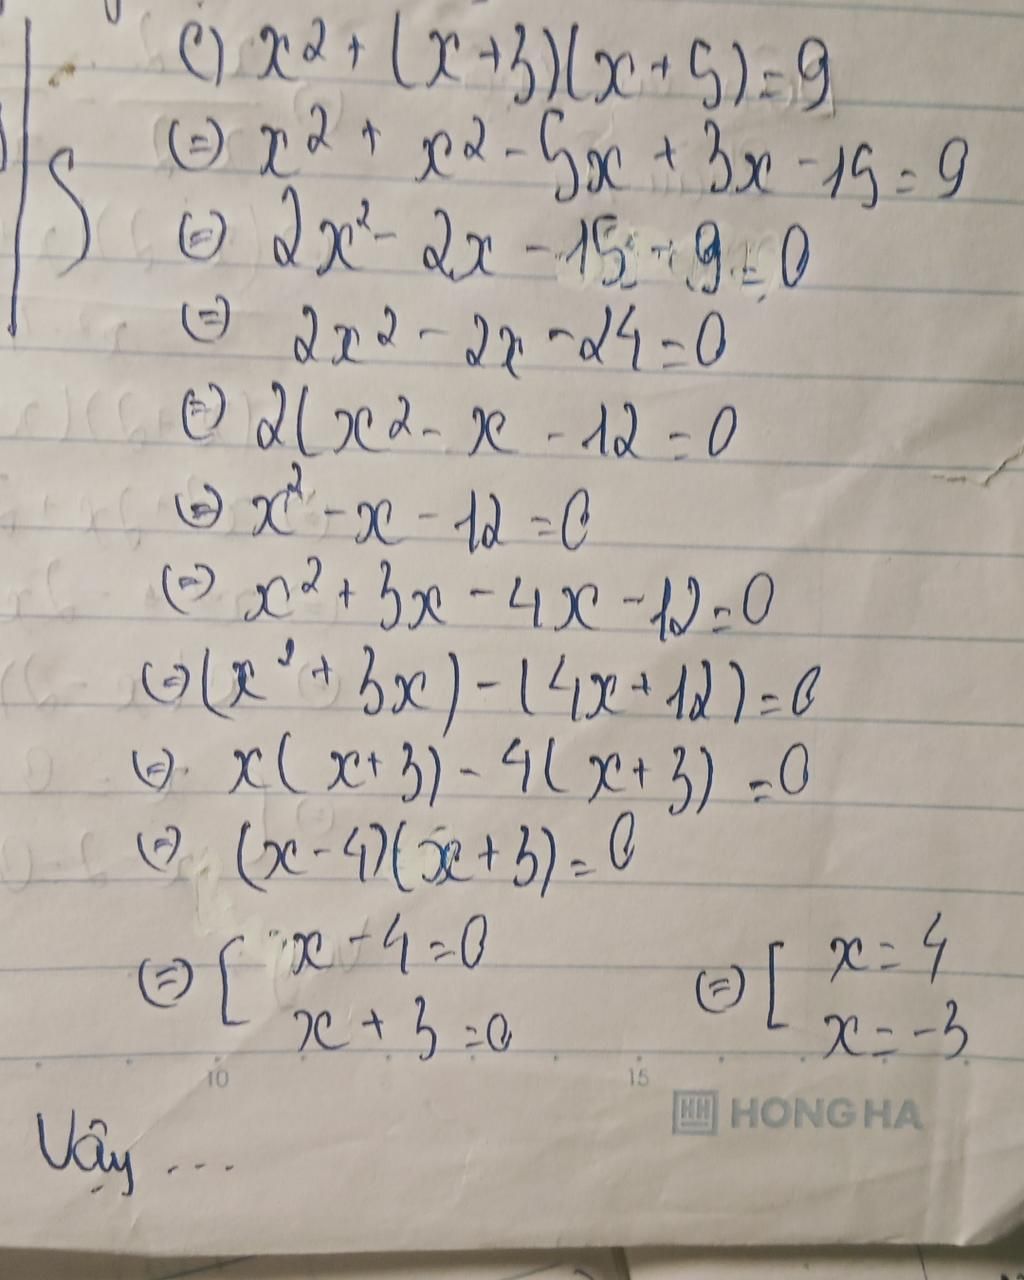 c) x² + (x+3)(x+5) = 9
(=) x² + x² - 5x + 3x - 15 = 9
S (=) 2x² - 2x - 15 - 9 = 0
(=) 2x² - 2x - 24 = 0
(=) 2(x² - x - 12 = 0
(=) x² - x - 12 = 0
(=) x² + 3x - 4x - 12 = 0
(=) (x² + 3x) - (4x + 12) = 0
(=) x(x+3) - 4(x+3) = 0
(=) (x-4)(x+3) = 0
(=) [ x - 4 = 0 (=) [ x = 4
x + 3 = 0 x = -3
10 15
HH HONG HA
Vậy ...